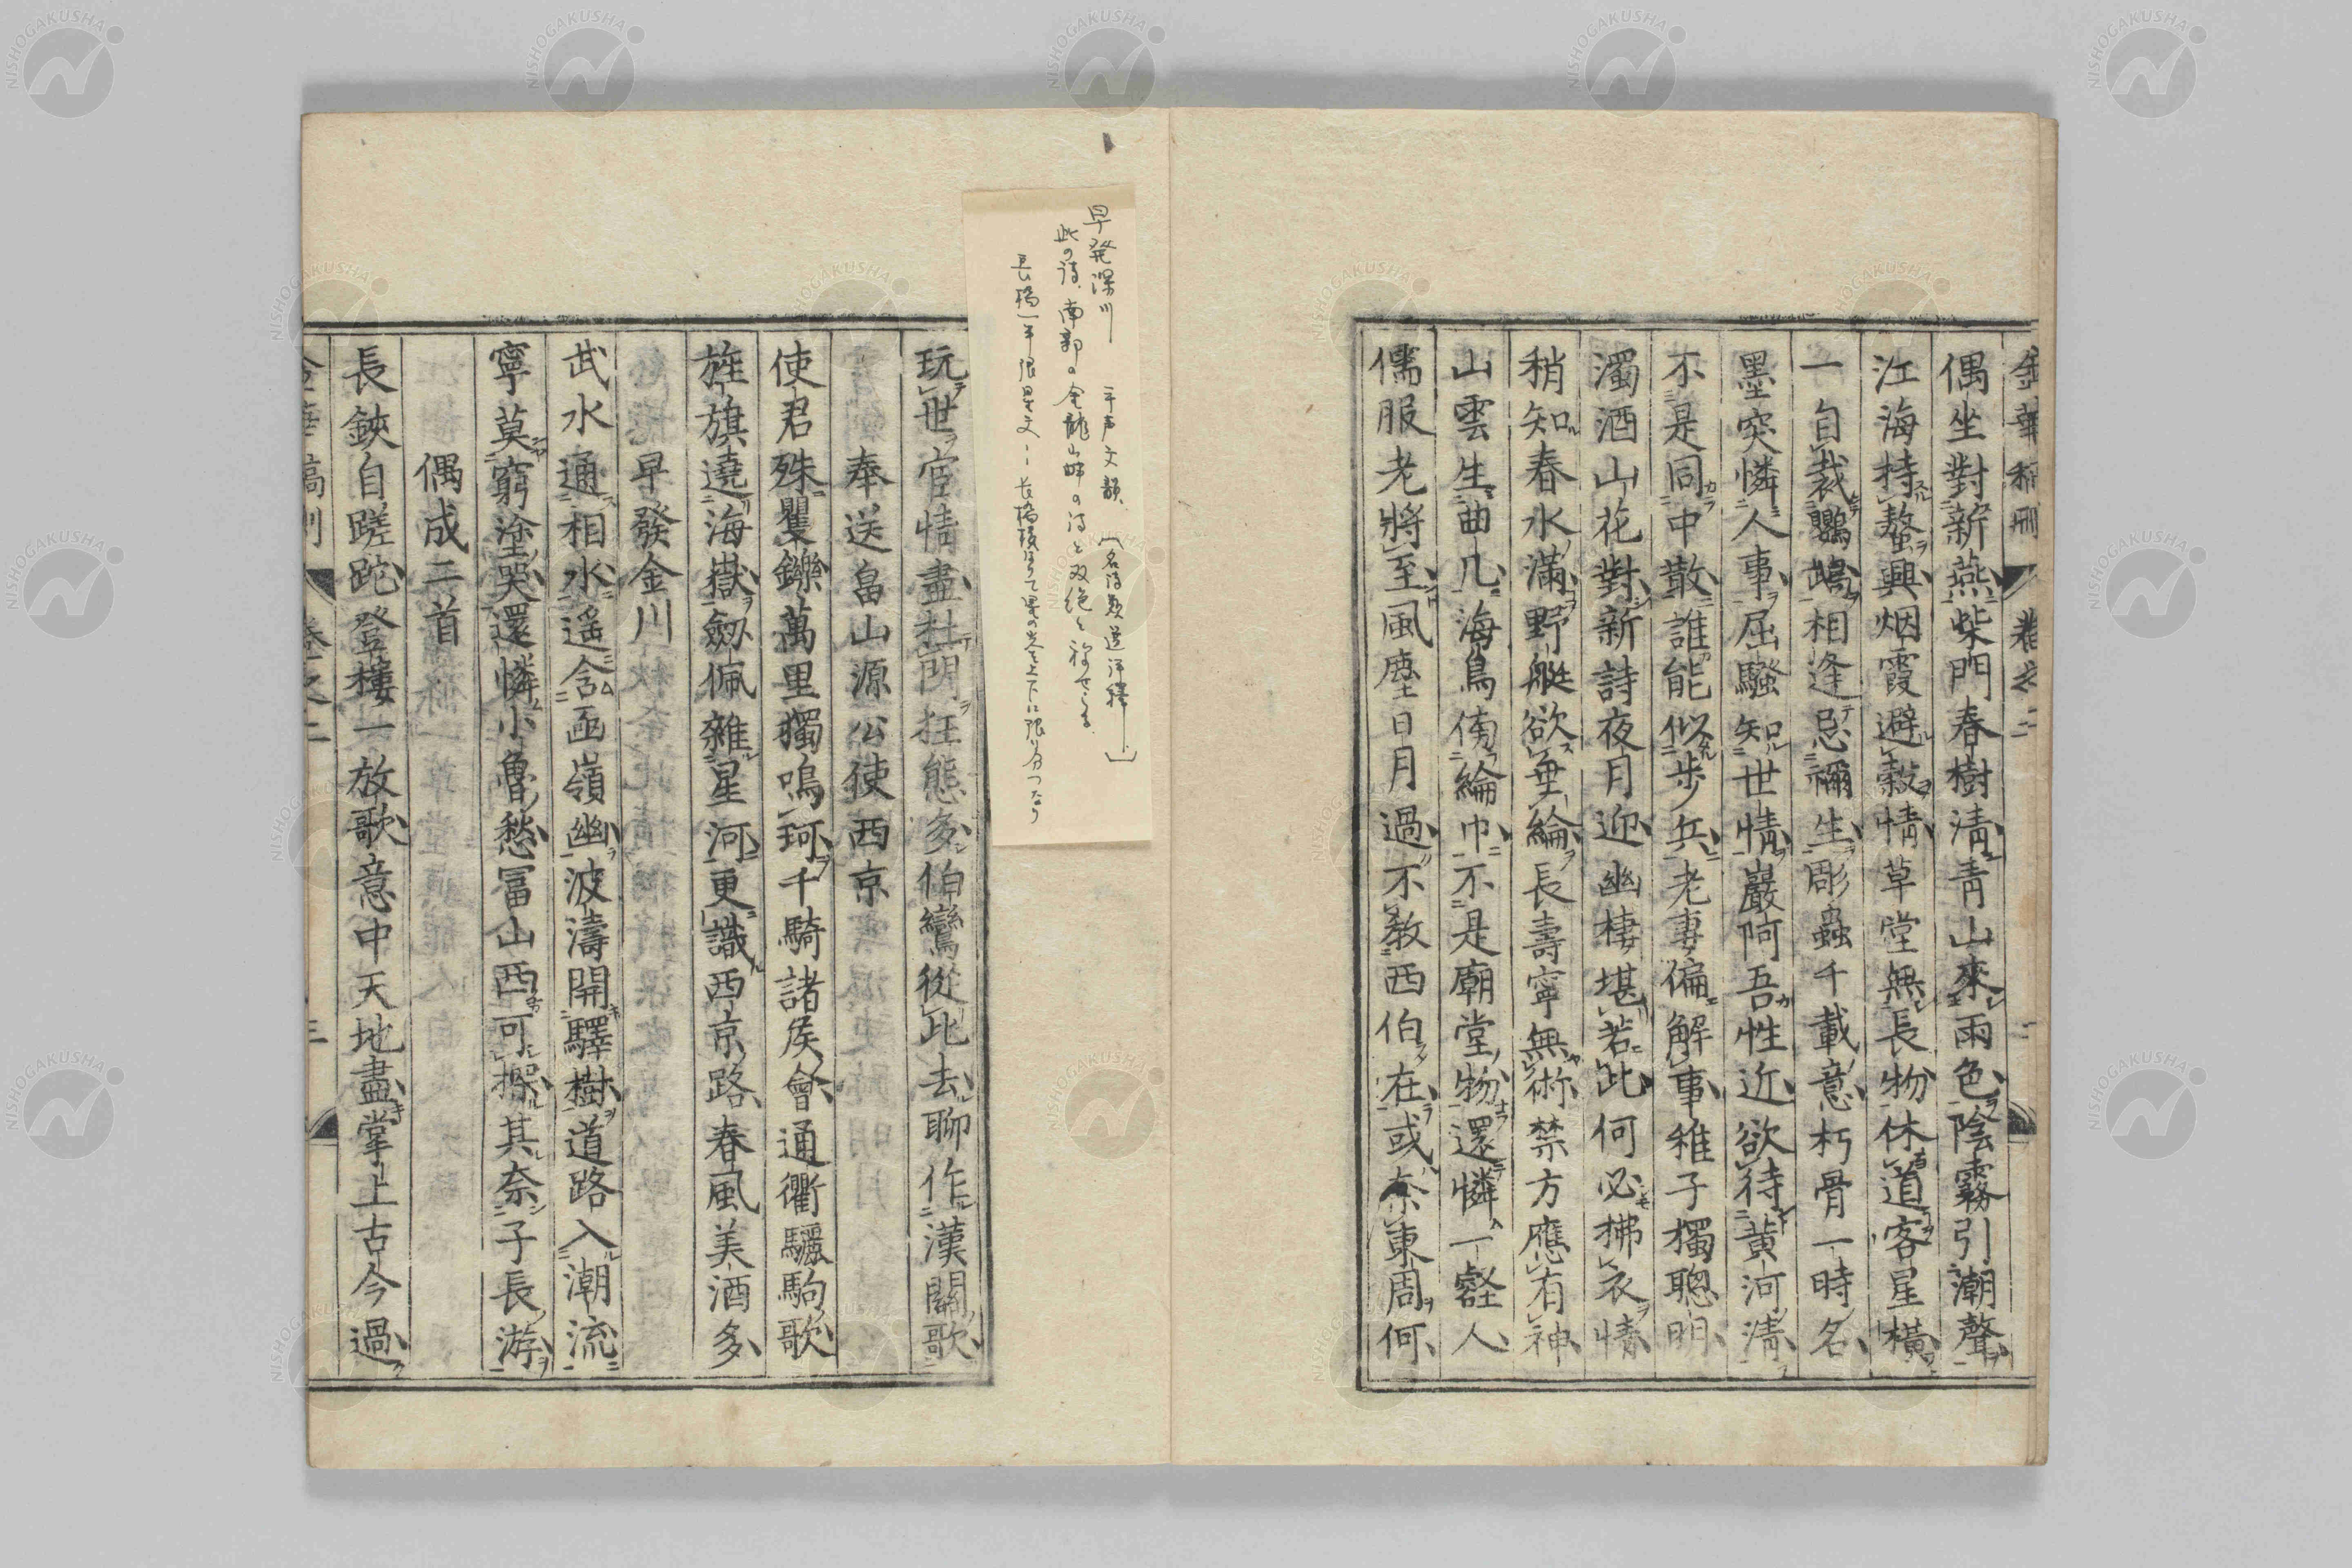 金華稿刪 卷之二 二
偶坐對新燕柴門春樹淸靑山來雨色陰霧引潮聲
江海持螯興烟霞避穀情草堂無長物休道客星橫
一自裁鸚鵡相逢忌禰生彫蟲千載意朽骨一時名
墨突憐人事屈騷知世情巖阿吾性近欲待黃河淸
不是同中散誰能似步兵老妻偏解事稚子獨聰明
濁酒山花對新詩夜月迎幽棲堪若此何必拂衣情
稍知春水滿野艇欲垂綸長壽寧無術禁方應有神
山雲生曲几海鳥傍綸巾不是廟堂物還憐一壑人
儒服老將至風塵日月過不敎西伯在或奈東周何
早発深川 平声文韻 (名詩選評釋)
此の詩、南部の金龍山畔の詩と双絶と称せらる
玩世宦情盡杜門狂態多伯鸞從此去聊作漢關歌
奉送畠山源公使西京
使君殊矍鑠萬里獨鳴珂千騎諸侯會通衢驪駒歌
旌旗遶海嶽劔佩雜星河更識西京路春風美酒多
早發金川
武水通相水遙含函嶺幽波濤開驛樹道路入潮流
寧莫窮塗哭還憐小魯愁冨山西可探其奈子長游
偶成二首
長鋏自蹉跎登樓一放歌意中天地盡掌上古今過
金華稿刪 卷之二 三